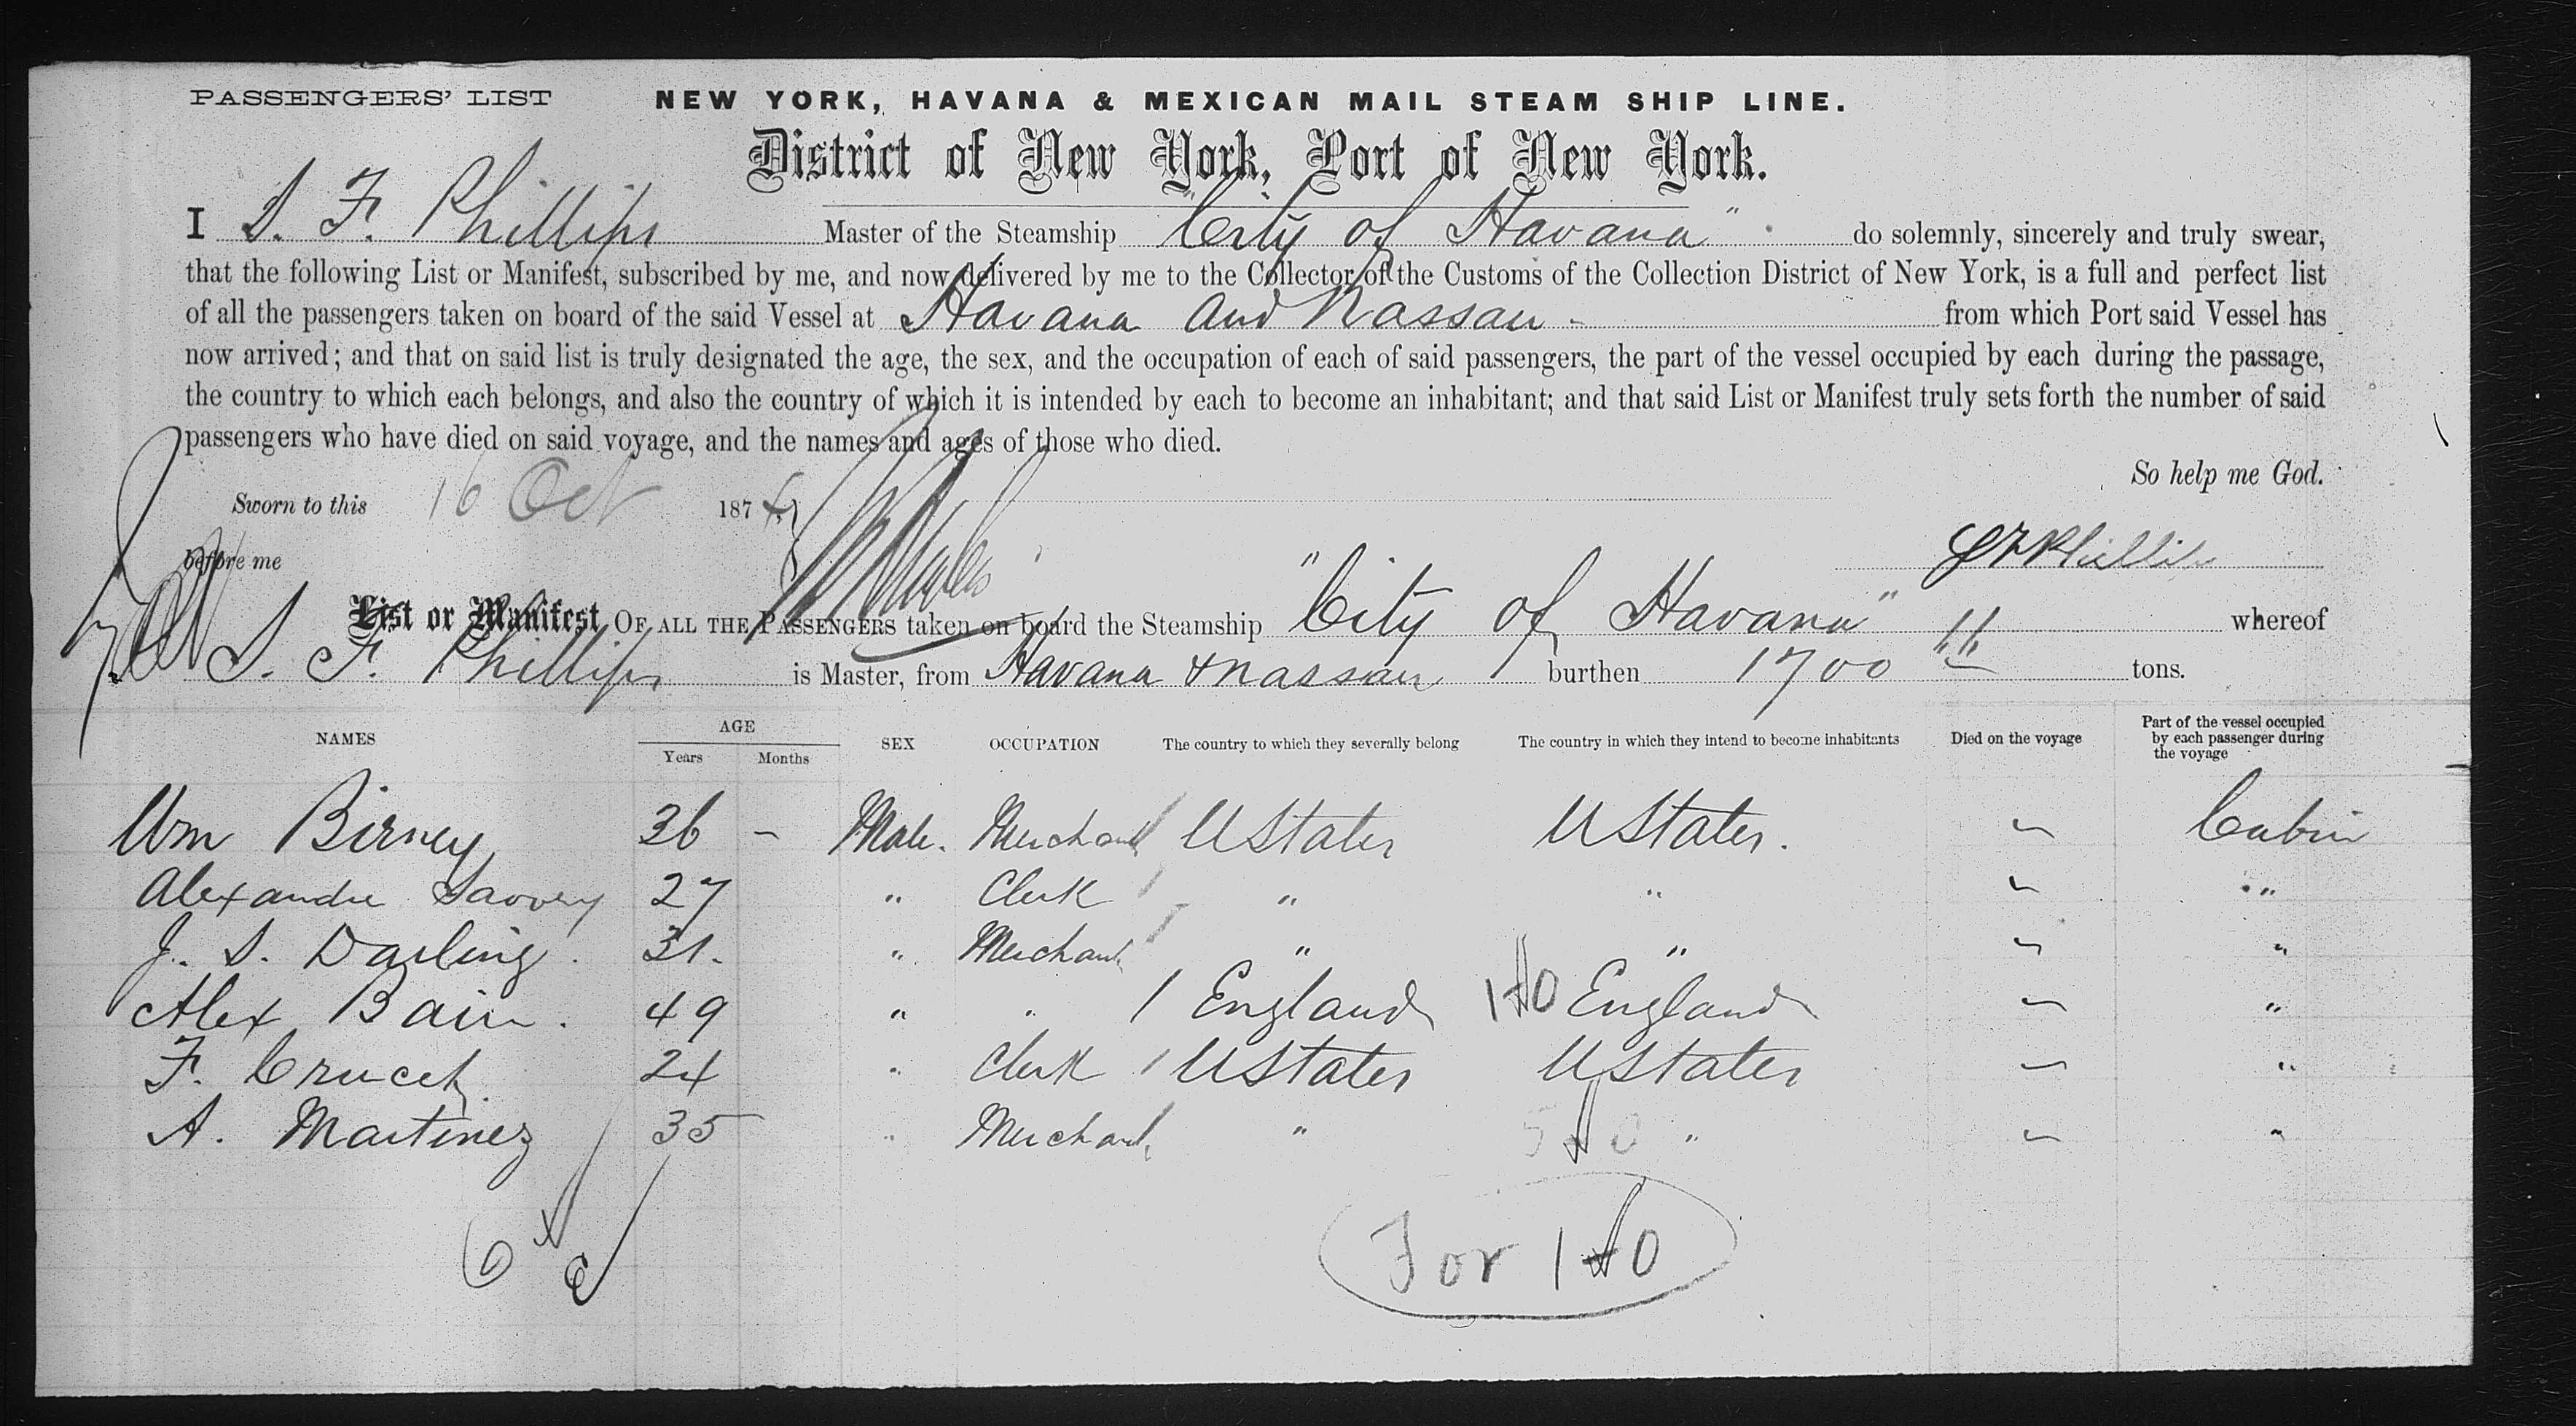 PASSENGERS' LIST NEW YORK, HAVANA & MEXICAN MAIL STEAM SHIP LINE.
District of New York, Port of New York.
I S. F. Phillips Master of the Steamship "City of Havana" do solemnly, sincerely and truly swear,
that the following List or Manifest, subscribed by me, and now delivered by me to the Collector of the Customs of the Collection District of New York, is a full and perfect list
of all the passengers taken on board of the said Vessel at Havana and Nassau - from which Port said Vessel has
now arrived; and that on said list is truly designated the age, the sex, and the occupation of each of said passengers, the part of the vessel occupied by each during the passage,
the country to which each belongs, and also the country of which it is intended by each to become an inhabitant; and that said List or Manifest truly sets forth the number of said
passengers who have died on said voyage, and the names and ages of those who died.
So help me God.
Sworn to this 16 Oct 187
before me S F Phillips
List or Manifest OF ALL THE PASSENGERS taken on board the Steamship "City of Havana" whereof
S. F. Phillips is Master, from Havana & Nassau burthen 1700 tons.
NAMES AGE Years Months SEX OCCUPATION The country to which they severally belong The country in which they intend to become inhabitants Died on the voyage Part of the vessel occupied by each passenger during the voyage
Wm Birney 36 - Male. Merchant / U States U States. - Cabin
Alexandre 27 " Clerk / " " - "
J. S. Darling. 31. " Merchant / " " - "
Alex Bain. 49 " " / England 1 0 England - "
F. 24 " Clerk / U States U States - "
A. Martinez 35 " Merchant " 5 0 " - "
6
For 1 0